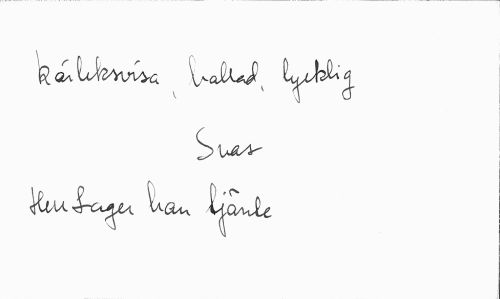 Kärleksvisa, ballad, lycklig
Svar
Herr Lager han tjänte